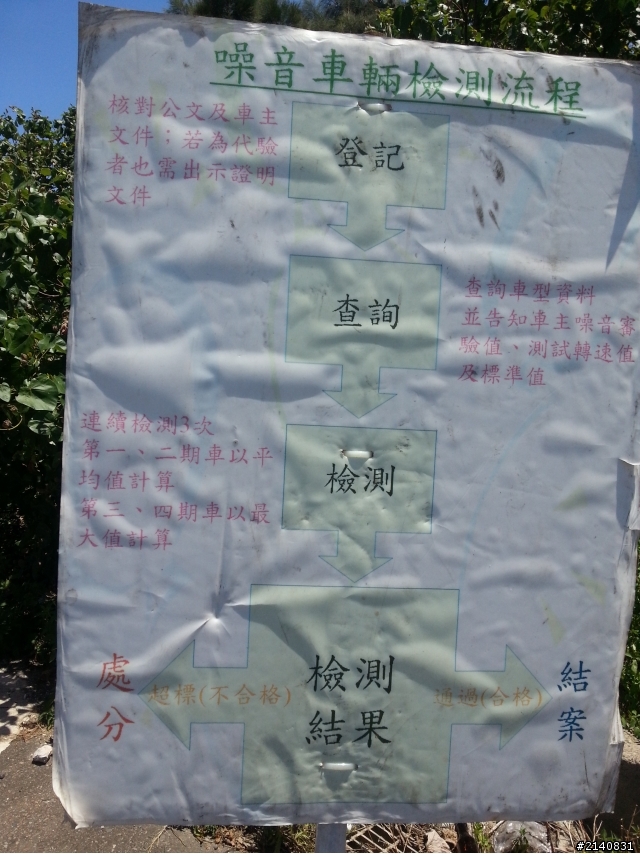 噪音車輛檢測流程
核對公文及車主
文件；若為代驗
者也需出示證明
文件
登記
查詢
查詢車型資料
並告知車主噪音審
驗值、測試轉速值
及標準值
連續檢測3次
第一、二期車以平
均值計算
第三、四期車以最
大值計算
檢測
檢測
結果
處
分
超標(不合格)
通過(合格)
結
案
#2140831